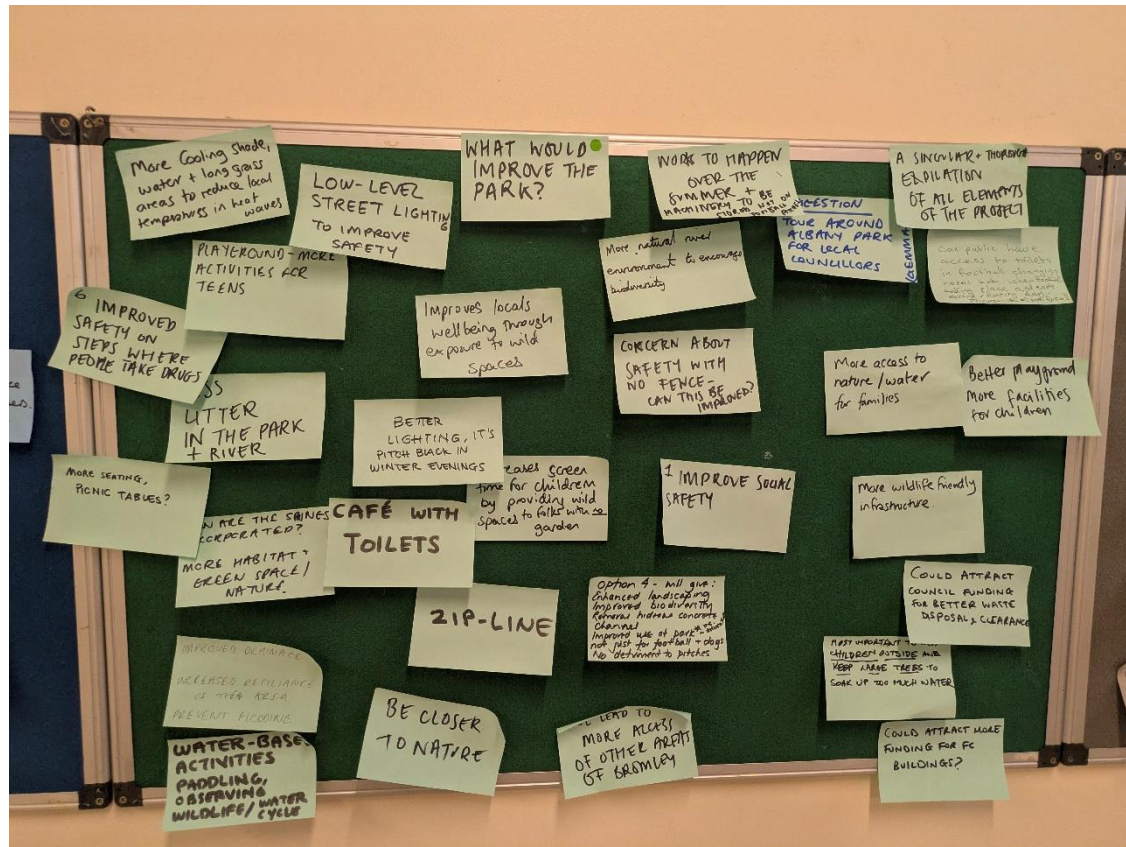 More Cooling Shade,
water + long grass
areas to reduce local
temperatures in heat
waves
LOW-LEVEL
STREET LIGHTING
TO IMPROVE
SAFETY
6
WHAT WOULD
IMPROVE THE
PARK?
WORKS TO HAPPEN
OVER THE
SUMMER + BE
MACHINERY TO BE
STORED NOT
A SINGULAR + THOROUGH
OF ALL ELEMENTS
OF THE PROJECT
GESTION
TOUR AROUND
ALBANY PARK
FOR LOCAL
COUNCILLORS
(GEMMA
PLAYGROUND - MORE
ACTIVITIES FOR
TEENS
More natural river
environment to encourage
biodiversity
Can public have
access to toilets
in football changing
6 IMPROVED
SAFETY ON
STEPS WHERE
PEOPLE TAKE DRUGS
Improves locals
wellbeing through
exposure to wild
spaces
CONCERN ABOUT
SAFETY WITH
NO FENCE -
CAN THIS BE
IMPROVED?
More access to
nature / water
for families
Better playground
More facilities
for children
SS
LITTER
IN THE PARK
+ RIVER
BETTER
LIGHTING, IT'S
PITCH BLACK IN
WINTER EVENINGS
MORE SEATING,
PICNIC TABLES?
eases screen
time for children
by providing wild
spaces to folks with no
garden
1 IMPROVE SOCIAL
SAFETY
More wildlife friendly
infrastructure.
N ARE THE
CORPORATED?
MORE HABITAT +
GREEN SPACE /
NATURE.
CAFÉ WITH
TOILETS
ZIP-LINE
Option 4 - will give:
Enhanced landscaping
Improved biodiversity
Removal hideous concrete
channel
Improved use of park
not just for football + dogs
No detriment to pitches
COULD ATTRACT
COUNCIL FUNDING
FOR BETTER WASTE
DISPOSAL & CLEARANCE
MOST IMPORTANT TO
CHILDREN OUTSIDE AND
KEEP LARGE TREES TO
SOAK UP TOO MUCH WATER
IMPROVED DRAINAGE
INCREASED RESILIANCE
OF THE AREA
PREVENT FLOODING
BE CLOSER
TO NATURE
LEAD TO
MORE ACCESS
OF OTHER AREAS
OF BROMLEY
COULD ATTRACT MORE
FUNDING FOR FC
BUILDINGS?
WATER-BASE
ACTIVITIES
PADDLING,
OBSERVING
WILDLIFE / WATER
CYCLE